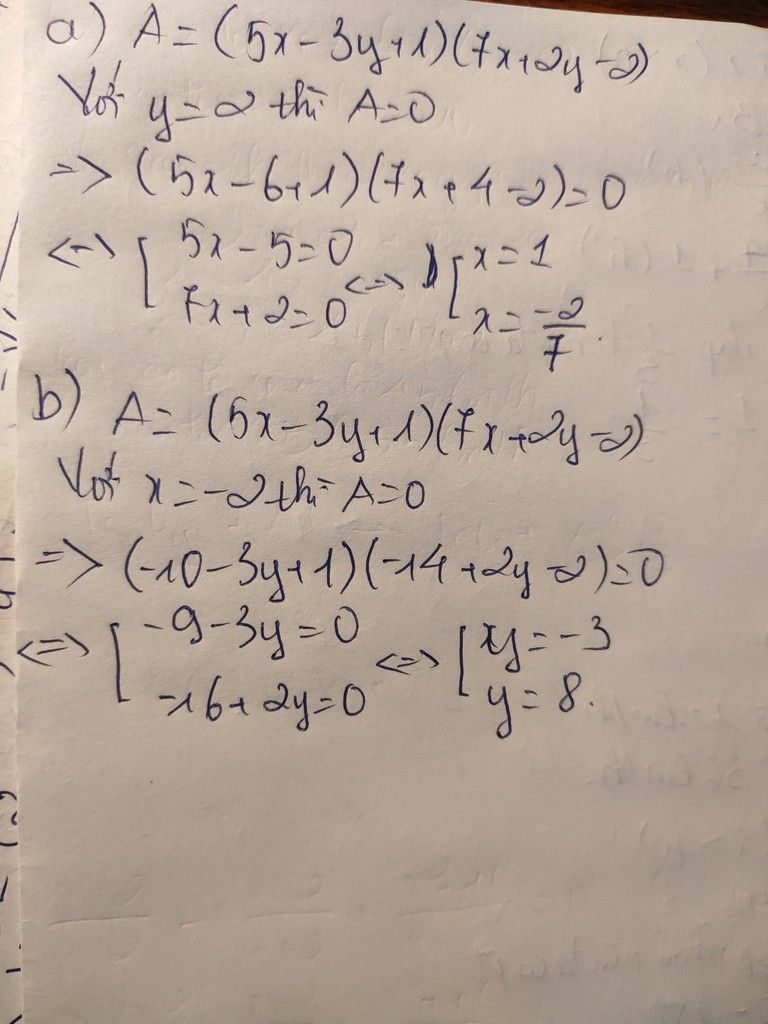 a) A = (5x - 3y + 1)(7x + 2y - 2)
Với y = 2 thì A = 0
=> (5x - 6 + 1)(7x + 4 - 2) = 0
<=> [ 5x - 5 = 0 <=> [ x = 1
7x + 2 = 0 x = -2/7.
b) A = (5x - 3y + 1)(7x + 2y - 2)
Với x = -2 thì A = 0
=> (-10 - 3y + 1)(-14 + 2y - 2) = 0
<=> [ -9 - 3y = 0 <=> [ y = -3
-16 + 2y = 0 y = 8.